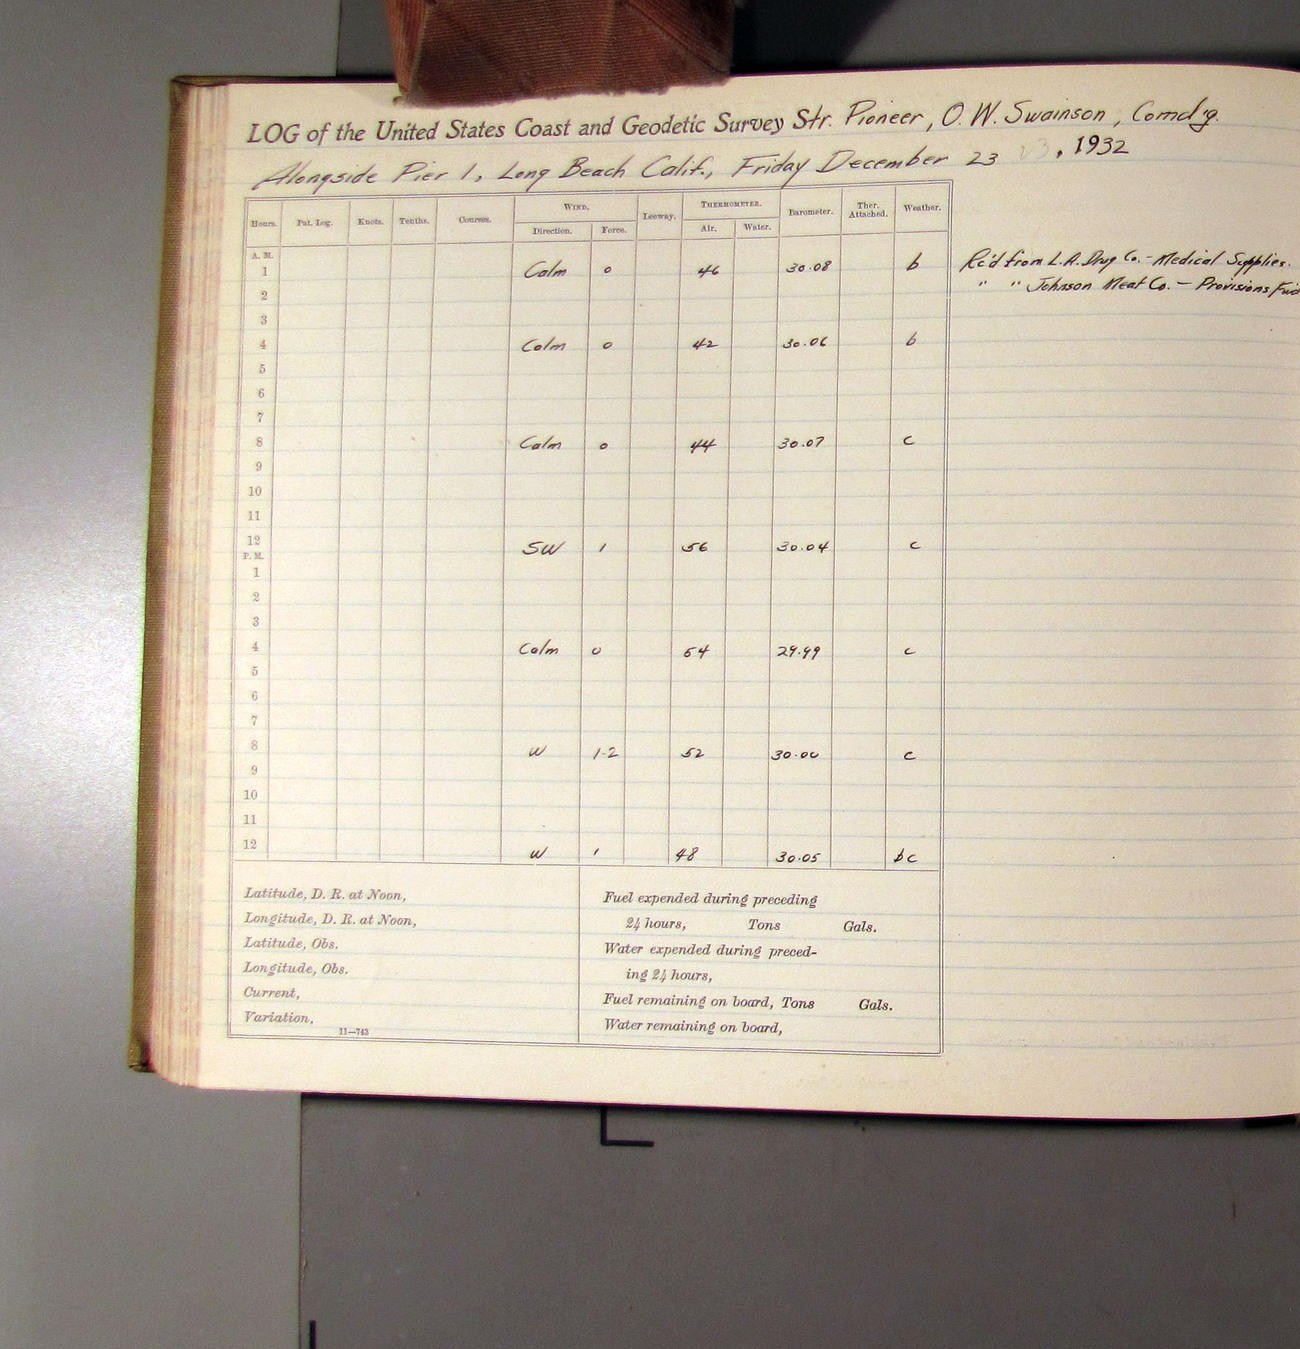 LOG of the United States Coast and Geodetic Survey Str. Pioneer, O. W. Swainson, Comd'g.
Alongside Pier 1, Long Beach Calif., Friday December 23, 1932
Hours. Pat. Log. Knots. Tenths. Courses. WIND. Leeway. THERMOMETER. Barometer. Ther. Attached. Weather.
Direction. Force. Air. Water.
A. M.
1 Calm 0 46 30.08 b Rc'd from L.A. Drug Co. - Medical Supplies.
2 " " Johnson Meat Co. - Provisions
3
4 Calm 0 42 30.06 b
5
6
7
8 Calm 0 44 30.07 c
9
10
11
12 SW 1 56 30.04 c
P. M.
1
2
3
4 Calm 0 54 29.99 c
5
6
7
8 W 1-2 52 30.00 c
9
10
11
12 W 1 48 30.05 bc
Latitude, D. R. at Noon,
Longitude, D. R. at Noon,
Latitude, Obs.
Longitude, Obs.
Current,
Variation,
11—743
Fuel expended during preceding
24 hours, Tons Gals.
Water expended during preced-
ing 24 hours,
Fuel remaining on board, Tons Gals.
Water remaining on board,